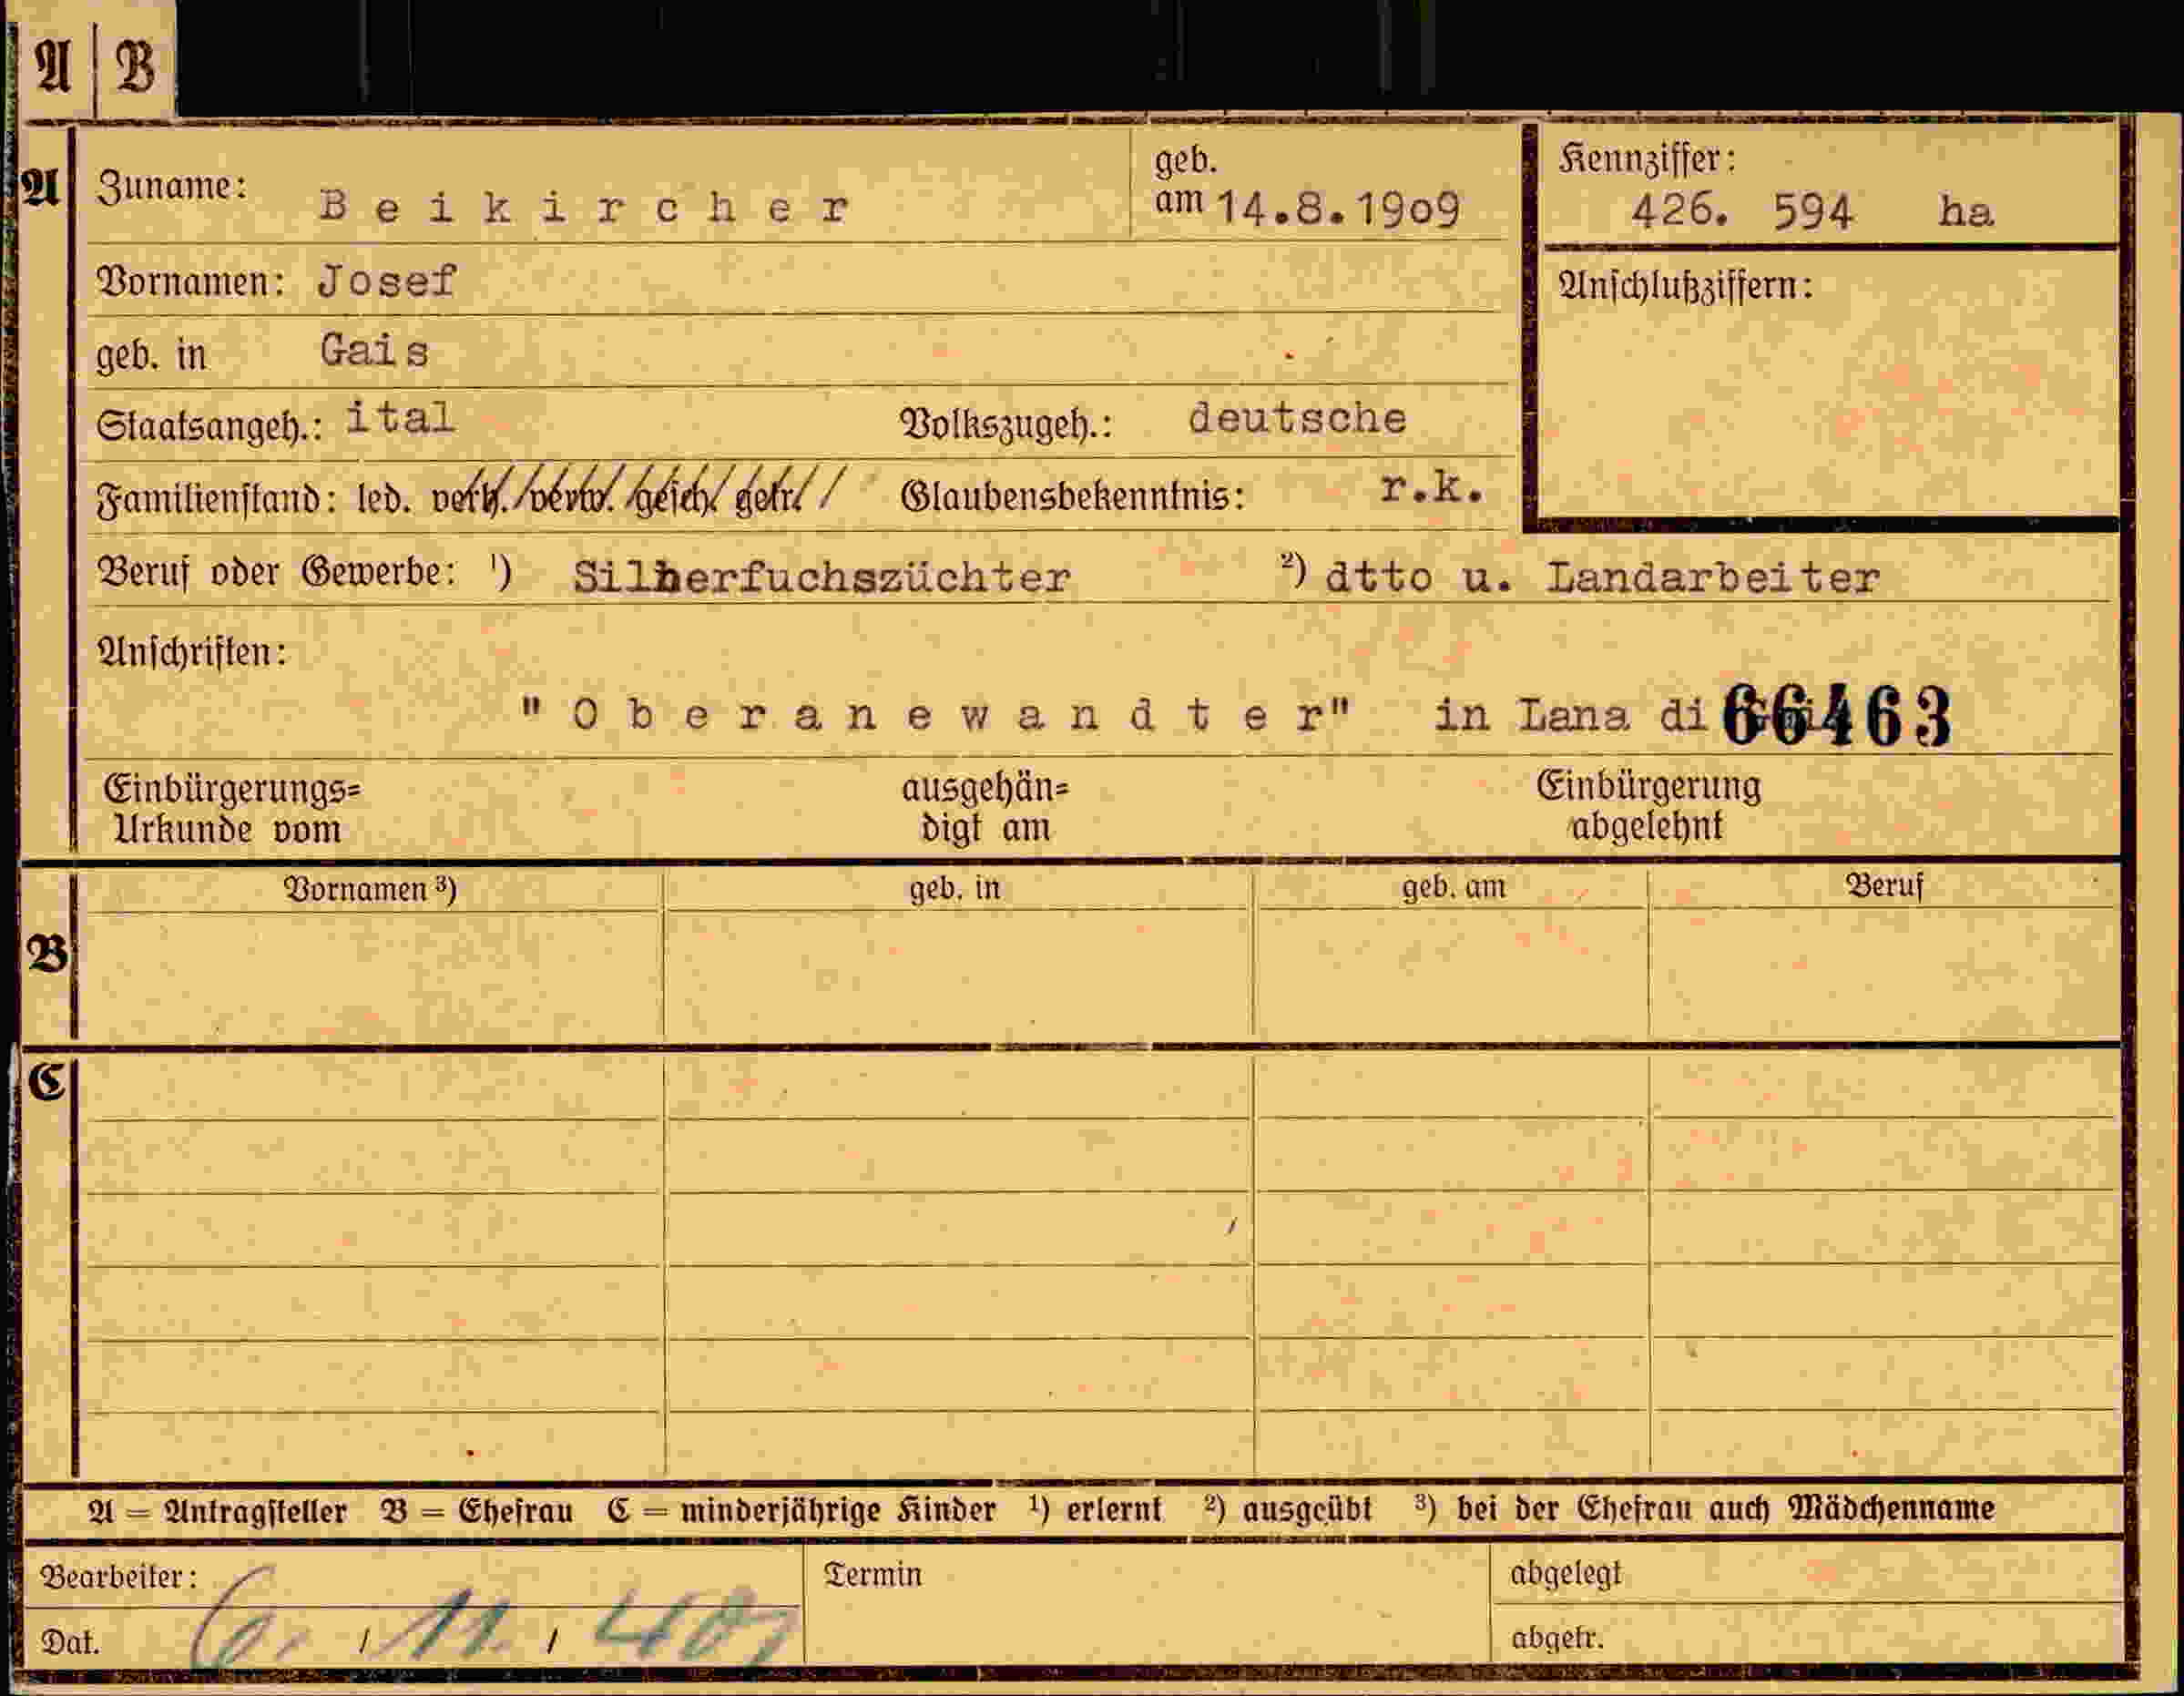 A | B
A Zuname: Beikircher geb. am 14.8.1909 Kennziffer: 426. 594 ha
Vornamen: Josef Anschlußziffern:
geb. in Gais
Staatsangeh.: ital Volkszugeh.: deutsche
Familienstand: led. verh. verw. gesch. getr. Glaubensbekenntnis: r.k.
Beruf oder Gewerbe: ¹) Silberfuchszüchter ²) dtto u. Landarbeiter
Anschriften:
"Oberanewandter" in Lana di 66463
Einbürgerungs= ausgehän= Einbürgerung
Urkunde vom digt am abgelehnt
Vornamen ³) geb. in geb. am Beruf
B
C
A = Antragsteller B = Ehefrau C = minderjährige Kinder ¹) erlernt ²) ausgeübt ³) bei der Ehefrau auch Mädchenname
Bearbeiter: Termin abgelegt
Dat. 6. / 11. / 40 abgetr.